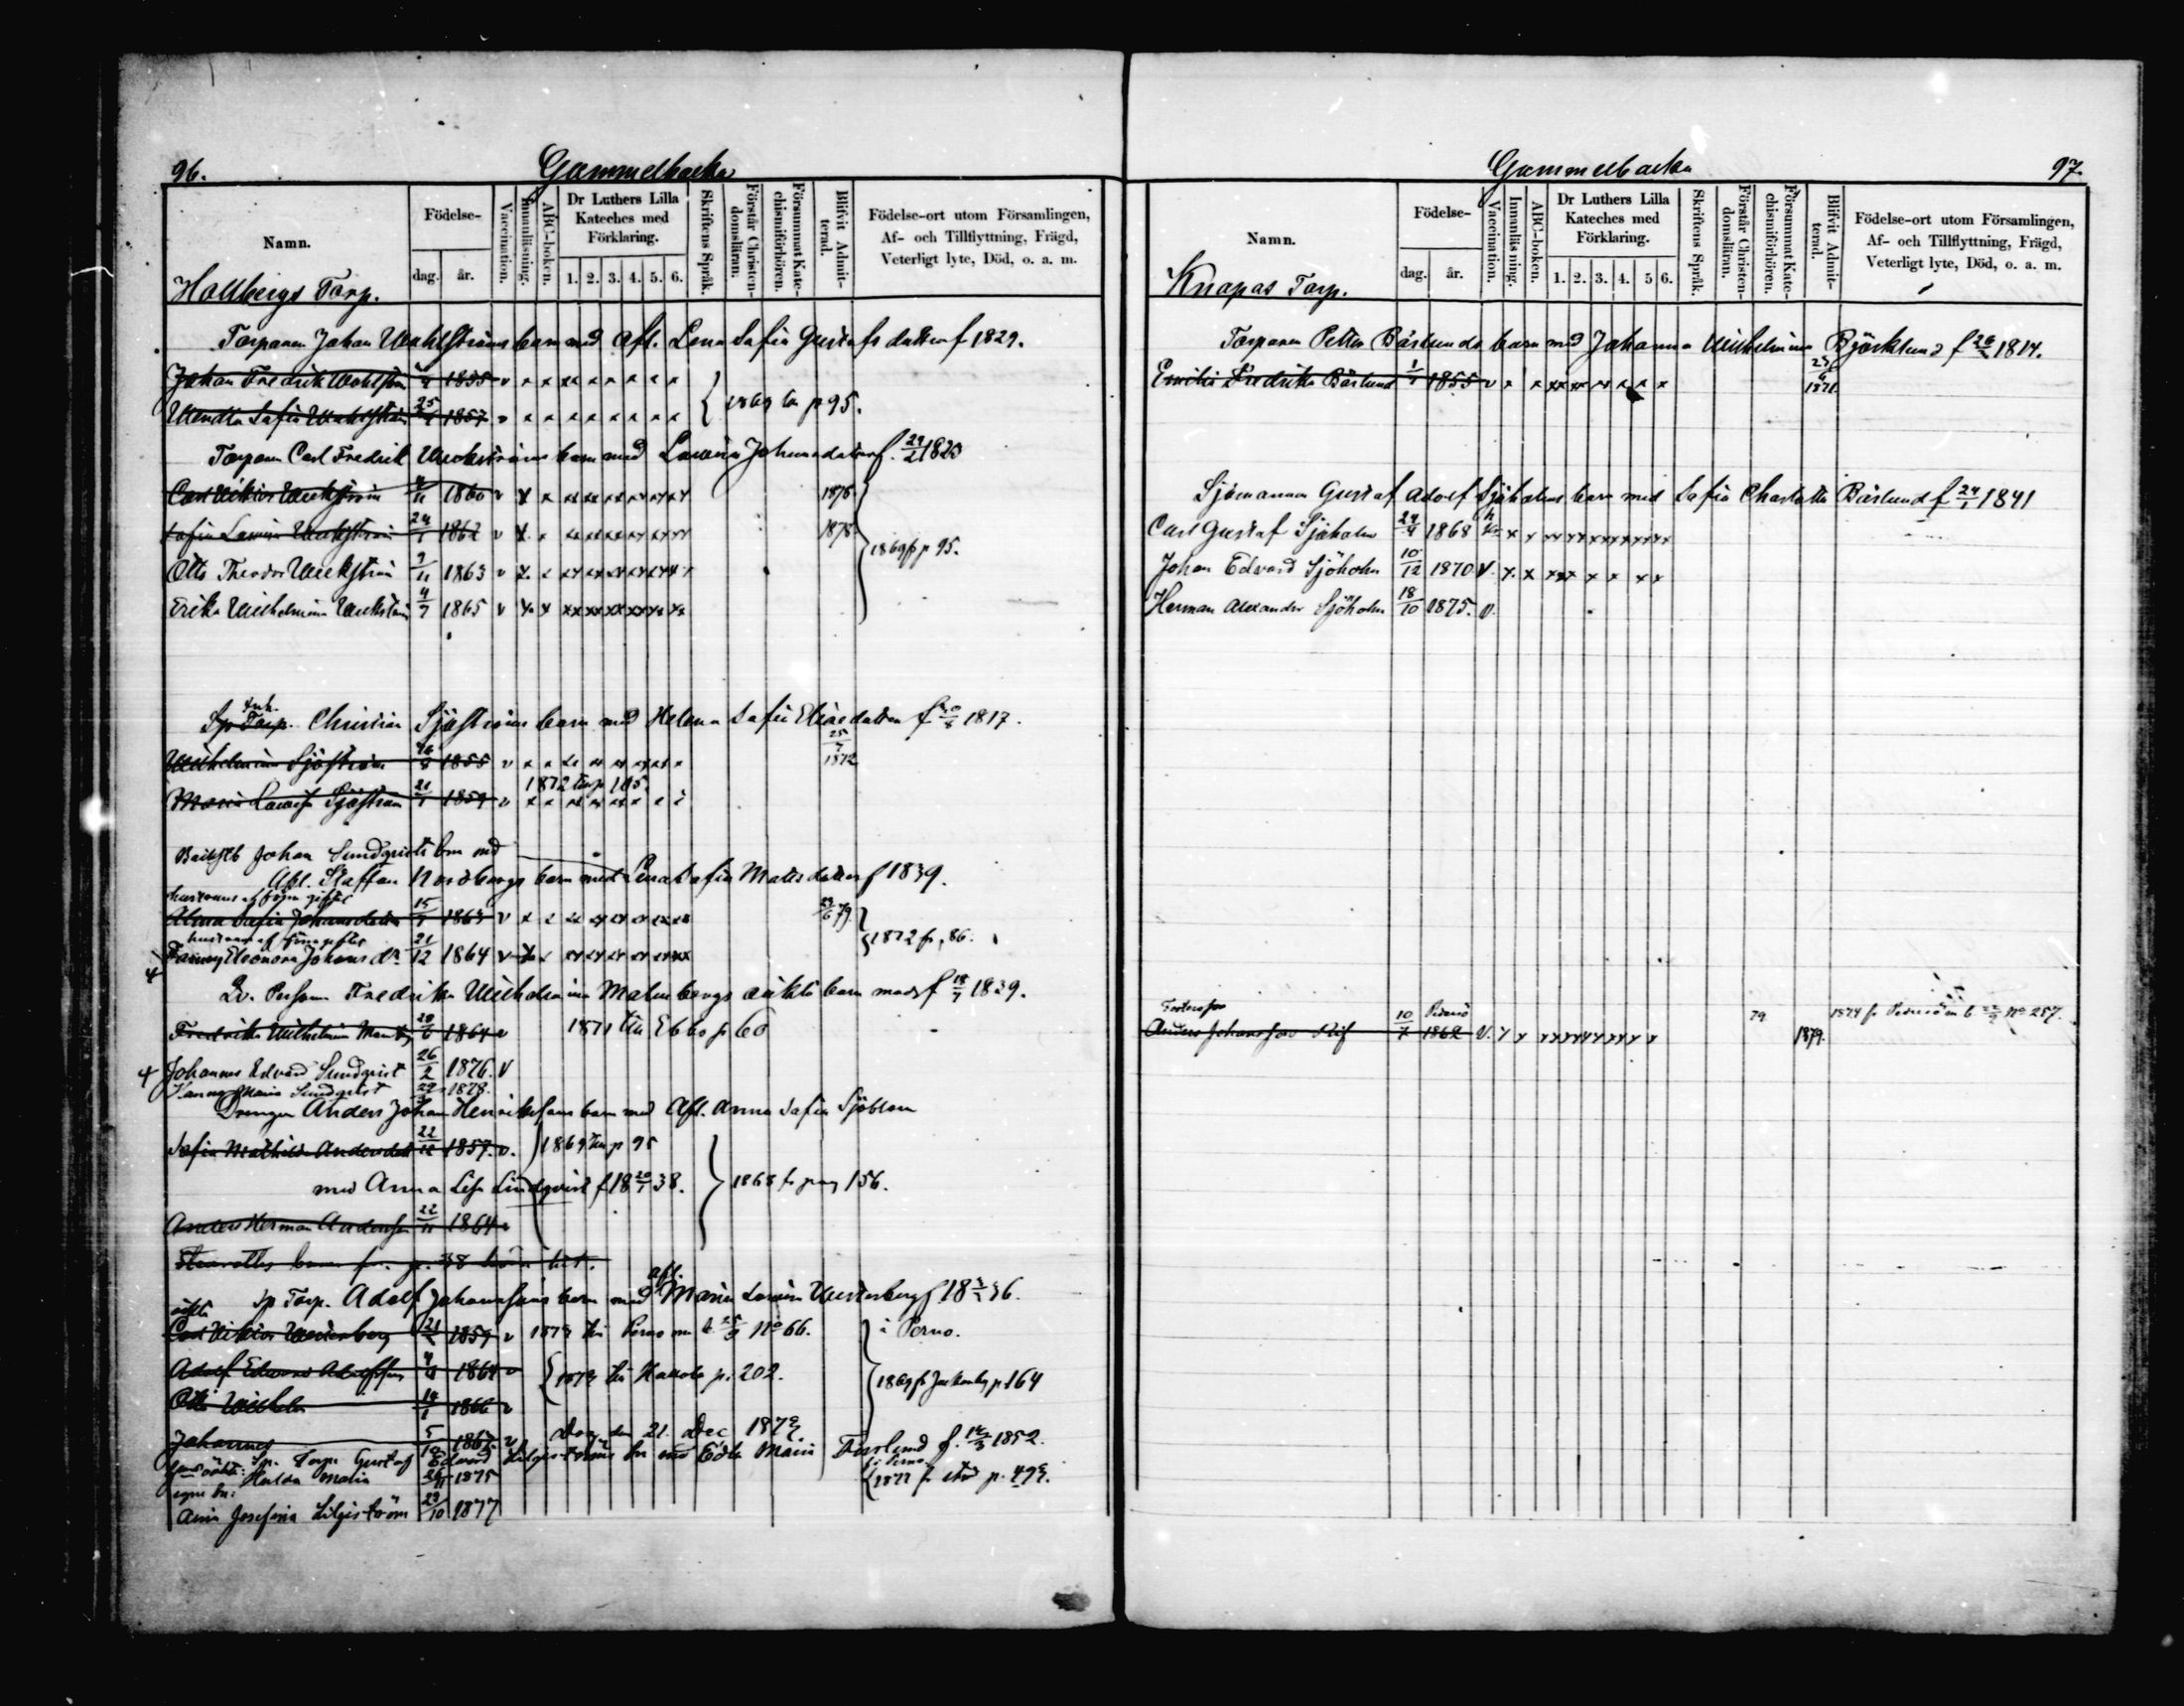 96.
Gammelbacka
Namn.
Födelse-
dag.
år.
Vaccination.
Innanläsning.
ABC-boken.
Dr Luthers Lilla
Kateches med
Förklaring.
1. 2. 3. 4. 5. 6.
Skriftens Språk.
Förstår Christen-
domsläran.
Försummat Kate-
chismiförhören.
Blifvit Admit-
terad.
Födelse-ort utom Församlingen,
Af- och Tillflyttning, Frägd,
Veterligt lyte, Död, o. a. m.
Hallbergs Torp.
Torparen Johan Wahlströms barn med afl. Lena Sofia Gustafsdotter f 1829.
Johan Fredrik Wahlström 1855 v
Wendla Sofia Wahlström 25 1857 v
1869 p 95.
Torparen Carl Fredrik Weckströms barn med Lovisa Johansdotter f.
Carl Viktor Weckström 11 1860 v 1876
Sofia Lovisa Weckström 24 1862 v 1878
Otto Theodor Weckström 11 1863 v
1869 fr p 95.
Erika Wilhelmina Weckström 4/7 1865 v
Sp Torp. Inh. Christian Sjöströms barn med Helena Sofia Eliaedotter f 1817.
Wilhelmina Sjöström 1855 v 25/7 1872
1872 till p 105.
Maria Lovisa Sjöström 21 1859 v
Johan Sundqvists barn med
Afl. Staffan Nordbergs barn med Lena Sofia Matts dotter f 1839.
hustruns af förra giftet
Alma Sofia Johansdotter 15 1863 v 79.
hustruns af förra giftet
1872 fr p. 86.
Fanny Eleonora Johans dr 21/12 1864 v
Lö. Persone Fredrika Wilhelmina Malmbergs oäkta barn f 18/7 1839.
Fredrika Wilhelmina 1864 v 1871 till Ebbo p 60
Johannes Edvard Sundqvist 26/2 1876. v
Hanna Maria Sundqvist 1878.
Drengen Anders Johan Henrikssons barn med Afl. Anna Sofia Sjöblom
Sofia Mathilda Andersdotter 22/12 1857. v. 1869 till p 95
med Anna Lisa Lindqvist f 18 38. 1868 fr pag 156.
Anders Herman Andersson 22/11 1864 v
Sp Torp. Adolf Johanssons barn med afl. Maria Lovisa Westerberg f. 18 36.
oäkta
Carl Viktor Westerberg 21 1859 v 1873 till Perno No 66. i Perno.
Adolf Edvard Adolfsson 1864 v
1873 till p. 202.
1869 fr p 164
Otto Wilhelm 14 1866 v
Johannes 5/12 1867 v Dog den 21. Dec 187
Sp. Torp. Gustaf Edvard Liljeströms bn med Edla Maria f. 1852.
oäkta: Hulda Maria 1875
1877 fr p. 492.
egne bn:
Aina Josefina Liljeström 29/10 1877
Gammelbacka
97.
Namn.
Födelse-
dag.
år.
Vaccination.
Innanläsning.
ABC-boken.
Dr Luthers Lilla
Kateches med
Förklaring.
1. 2. 3. 4. 5 6.
Skriftens Språk.
Förstår Christen-
domsläran.
Försummat Kate-
chismiförhören.
Blifvit Admit-
terad.
Födelse-ort utom Församlingen,
Af- och Tillflyttning, Frägd,
Veterligt lyte, Död, o. a. m.
Knapas Torp.
Torparen Petter Bärlunds barn med Johanna Wilhelmina Björklund f 1814.
Emilia Fredrika Bärlund 1855 v 1871.
Sjömannen Gustaf Adolf Sjöholms barn med Sofia Charlotta Bärlund f 24/1 1841
Carl Gustaf Sjöholm 24/4 1868
Johan Edvard Sjöholm 10/12 1870 v.
Herman Alexander Sjöholm 18/10 1875. v.
Fosterson
Anders Johansson 10/7 1862 v. 79 1879. No 257.